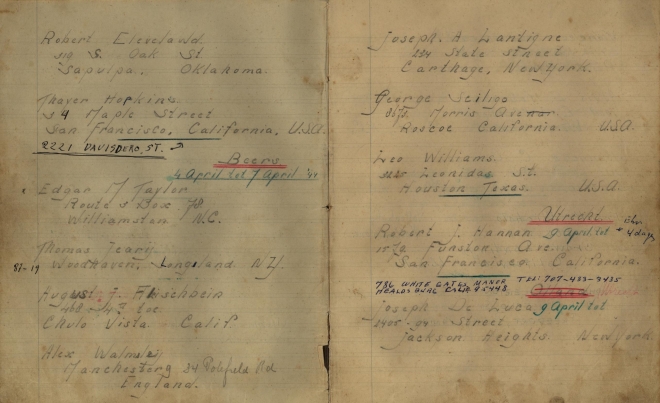 Robert Eleveland
S. Oak St
Sapulpa, Oklahoma.
Thayer Hopkins
54 Maple Street
San Francisco, California, U.S.A.
2221 DAVISDERO, ST.
Beers
4 April tot 7 April '44
Edgar M Taylor
Route 3 Box 78
Williamston N.C.
Thomas
87-19 Woodhaven, Longeland N.Y.
August J. Flischbein
468
Chulo Vista Calif.
Alex Walmsley
Manchester 24 Rd
England.
Joseph. A Lantigne
224 State Street
Carthage, New York.
George Seiligo
Morris Avenue
Roscoe California. U.S.A.
Leo Williams.
Leonidas St.
Houston Texas. U.S.A.
Utrecht
Robert J. Hannan 9 April tot + 4 days
Funston Ave.
San Francisco California.
786 WHITE GATES MANOR TEL: 707-433-3435
HEALDSBURG CALIF 95448
Joseph De Luca 9 April tot
Street
Jackson Heights New York.